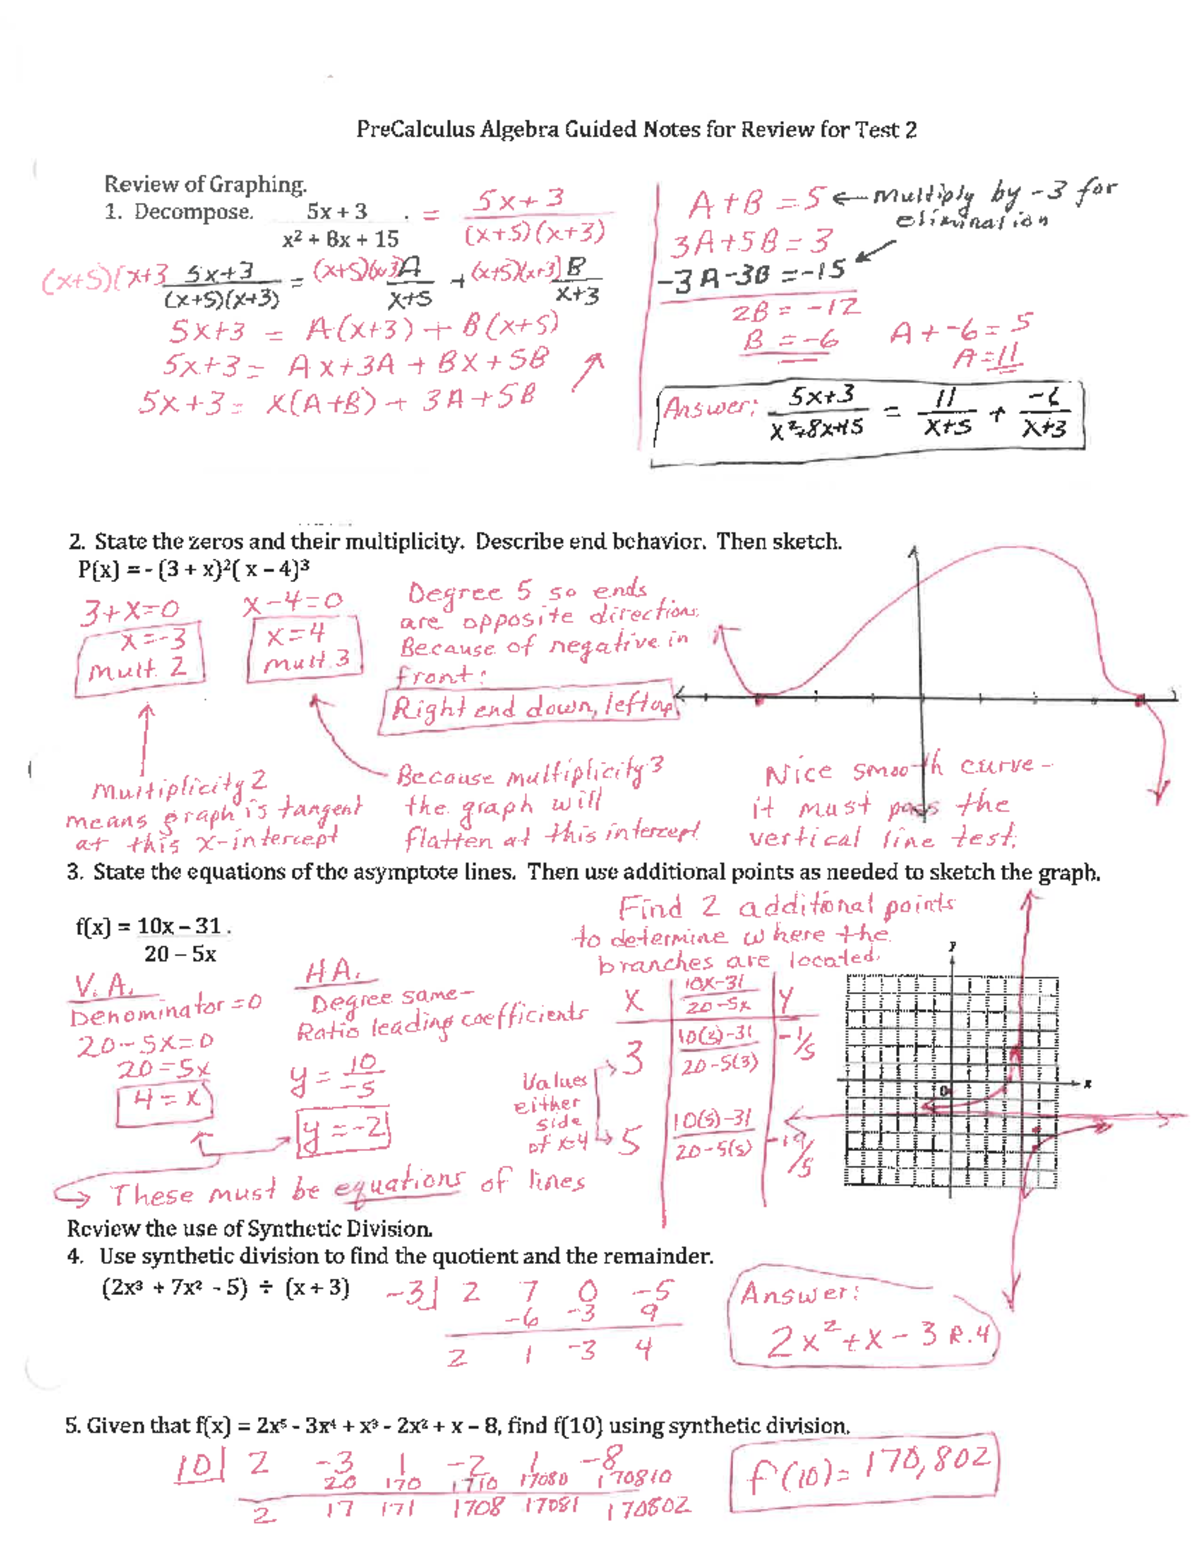 PreCalculus Algebra Guided Notes for Review for Test 2
Review of Graphing.
1. Decompose. 5x + 3 .
x² + 8x + 15
= 5x + 3
(x+5)(x+3)
(x+5)(x+3 5x+3 = (x+5)(x+3)A + (x+5)(x+3)B
(x+5)(x+3) x+5 x+3
5x+3 = A(x+3) + B(x+5)
5x+3 = Ax+3A + Bx+5B
5x+3 = x(A+B) + 3A+5B
A+B = 5 ← multiply by -3 for
elimination
3A+5B = 3
-3A-3B = -15
2B = -12
B = -6
A + -6 = 5
A = 11
Answer: 5x+3 = 11 + -6
x²+8x+15 x+5 x+3
2. State the zeros and their multiplicity. Describe end behavior. Then sketch.
P(x) = - (3 + x)²( x – 4)³
3+x=0
x=-3
mult. 2
x-4=0
x=4
mult. 3
Degree 5 so ends
are opposite directions.
Because of negative in
front:
Right end down, left up
Multiplicity 2
means graph is tangent
at this x-intercept
Because multiplicity 3
the graph will
flatten at this intercept
Nice smooth curve-
it must pass the
vertical line test.
3. State the equations of the asymptote lines. Then use additional points as needed to sketch the graph.
f(x) = 10x – 31 .
20 – 5x
V.A.
Denominator = 0
20-5x=0
20=5x
4=x
H.A.
Degree same-
Ratio leading coefficients
y = 10
-5
y = -2
These must be equations of lines
Find 2 additional points
to determine where the
branches are located.
X 10x-31 Y
20-5x
3 10(3)-31 -1/5
20-5(3)
Values
either
side
of x=4
5 10(5)-31 -19/5
20-5(5)
y
0
x
Review the use of Synthetic Division.
4. Use synthetic division to find the quotient and the remainder.
(2x³ + 7x² - 5) ÷ (x + 3)
-3| 2 7 0 -5
-6 -3 9
2 1 -3 4
Answer:
2x²+x-3 R.4
5. Given that f(x) = 2x⁵ - 3x⁴ + x³ - 2x² + x – 8, find f(10) using synthetic division.
10| 2 -3 1 -2 1 -8
20 170 1710 17080 170810
2 17 171 1708 17081 170802
f(10)= 170,802